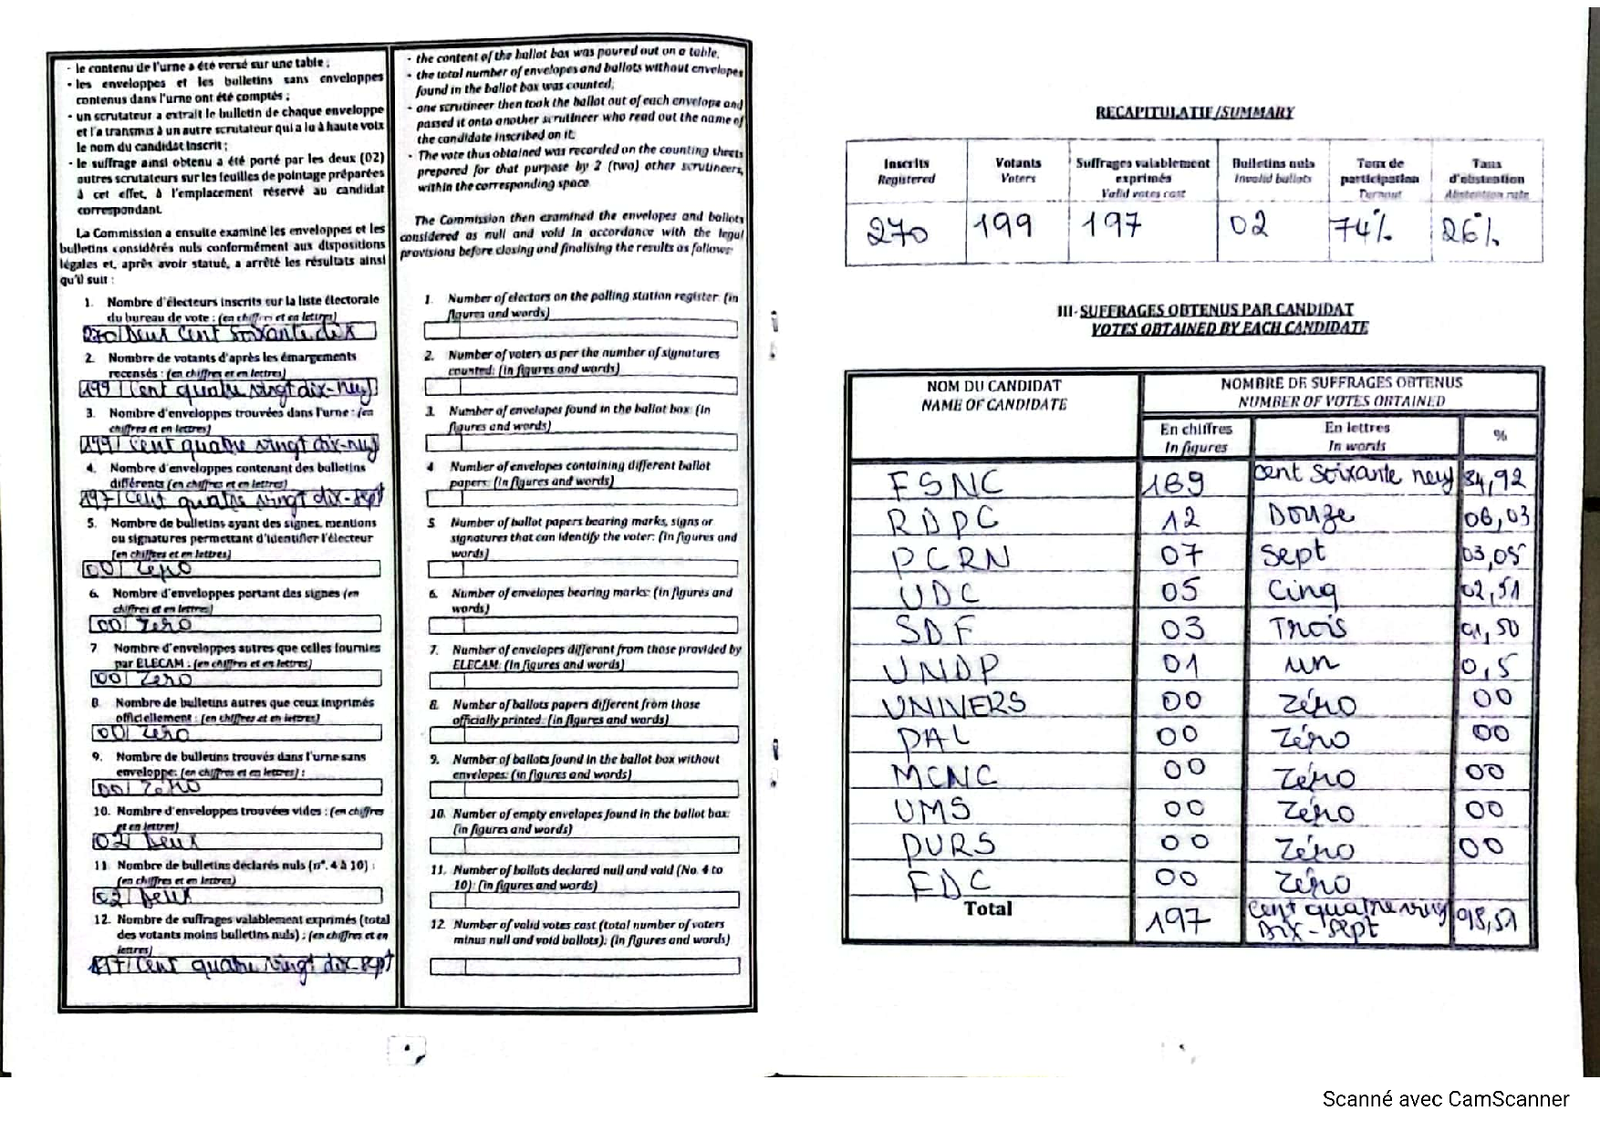 - le contenu de l'urne a été versé sur une table ;
- les enveloppes et les bulletins sans enveloppes
contenus dans l'urne ont été comptés ;
- un scrutateur a extrait le bulletin de chaque enveloppe
et l'a transmis à un autre scrutateur qui a lu à haute voix
le nom du candidat inscrit ;
- le suffrage ainsi obtenu a été porté par les deux (02)
autres scrutateurs sur les feuilles de pointage préparées
à cet effet, à l'emplacement réservé au candidat
correspondant.
La Commission a ensuite examiné les enveloppes et les
bulletins considérés nuls conformément aux dispositions
légales et, après avoir statué, a arrêté les résultats ainsi
qu'il suit :
1. Nombre d'électeurs inscrits sur la liste électorale
du bureau de vote : (en chiffres et en lettres)
270 Deux Cent Soixante dix
2. Nombre de votants d'après les émargements
recensés : (en chiffres et en lettres)
199 Cent quatre vingt dix-neuf
3. Nombre d'enveloppes trouvées dans l'urne : (en
chiffres et en lettres)
199 Cent quatre vingt dix-neuf
4. Nombre d'enveloppes contenant des bulletins
différents (en chiffres et en lettres)
197 Cent quatre vingt dix-sept
5. Nombre de bulletins ayant des signes, mentions
ou signatures permettant d'identifier l'électeur
(en chiffres et en lettres)
00 Zéro
6. Nombre d'enveloppes portant des signes (en
chiffres et en lettres)
00 Zéro
7 Nombre d'enveloppes autres que celles fournies
par ELECAM : (en chiffres et en lettres)
00 Zéro
8 Nombre de bulletins autres que ceux imprimés
officiellement : (en chiffres et en lettres)
00 Zéro
9. Nombre de bulletins trouvés dans l'urne sans
enveloppe: (en chiffres et en lettres) :
00 Zéro
10. Nombre d'enveloppes trouvées vides : (en chiffres
et en lettres)
02 Deux
11 Nombre de bulletins déclarés nuls (n°. 4 à 10) :
(en chiffres et en lettres)
02 Deux
12. Nombre de suffrages valablement exprimés (total
des votants moins bulletins nuls) : (en chiffres et en
lettres)
197 Cent quatre vingt dix-sept
- the content of the ballot box was poured out on a table,
- the total number of envelopes and ballots without envelopes
found in the ballot box was counted;
- one scrutineer then took the ballot out of each envelope and
passed it onto another scrutineer who read out the name of
the candidate inscribed on it;
- The vote thus obtained was recorded on the counting sheets
prepared for that purpose by 2 (two) other scrutineers,
within the corresponding space.
The Commission then examined the envelopes and ballots
considered as null and void in accordance with the legal
provisions before closing and finalising the results as follows:
1. Number of electors on the polling station register: (in
figures and words)
2. Number of voters as per the number of signatures
counted: (in figures and words)
3. Number of envelopes found in the ballot box: (in
figures and words)
4 Number of envelopes containing different ballot
papers: (in figures and words)
5 Number of ballot papers bearing marks, signs or
signatures that can identify the voter: (in figures and
words)
6. Number of envelopes bearing marks: (in figures and
words)
7. Number of envelopes different from those provided by
ELECAM: (in figures and words)
8. Number of ballots papers different from those
officially printed: (in figures and words)
9. Number of ballots found in the ballot box without
envelopes: (in figures and words)
10. Number of empty envelopes found in the ballot box:
(in figures and words)
11. Number of ballots declared null and void (No. 4 to
10): (in figures and words)
12 Number of valid votes cast (total number of voters
minus null and void ballots): (in figures and words)
RECAPITULATIF/SUMMARY
Inscrits Registered | Votants Voters | Suffrages valablement exprimés Valid votes cast | Bulletins nuls Invalid ballots | Taux de participation Turnout | Taux d'abstention Abstention rate
270 199 197 02 74% 26%
III- SUFFRAGES OBTENUS PAR CANDIDAT
VOTES OBTAINED BY EACH CANDIDATE
NOM DU CANDIDAT NOMBRE DE SUFFRAGES OBTENUS
NAME OF CANDIDATE NUMBER OF VOTES OBTAINED
En chiffres En lettres %
In figures In words
FSNC 169 Cent Soixante neuf 84,92
RDPC 12 Douze 06,03
PCRN 07 Sept 03,05
UDC 05 Cinq 02,51
SDF 03 Trois 01,50
UNDP 01 un 0,5
UNIVERS 00 Zéro 00
PAL 00 Zéro 00
MCNC 00 Zéro 00
UMS 00 Zéro 00
PURS 00 Zéro 00
FDC 00 Zéro
Total 197 Cent quatre vingt Dix-Sept 98,51
Scanné avec CamScanner